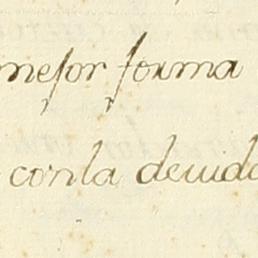 mejor forma
conla devida